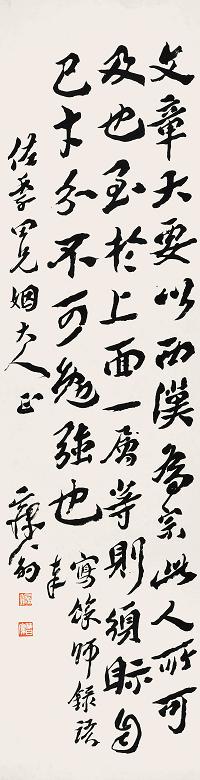 文章大要以西漢為宗此人所可
及也至於上面一層等則須眎自
己才分不可勉強也
寫餘師錄語
奉
佐季四兄姻大人正
翁